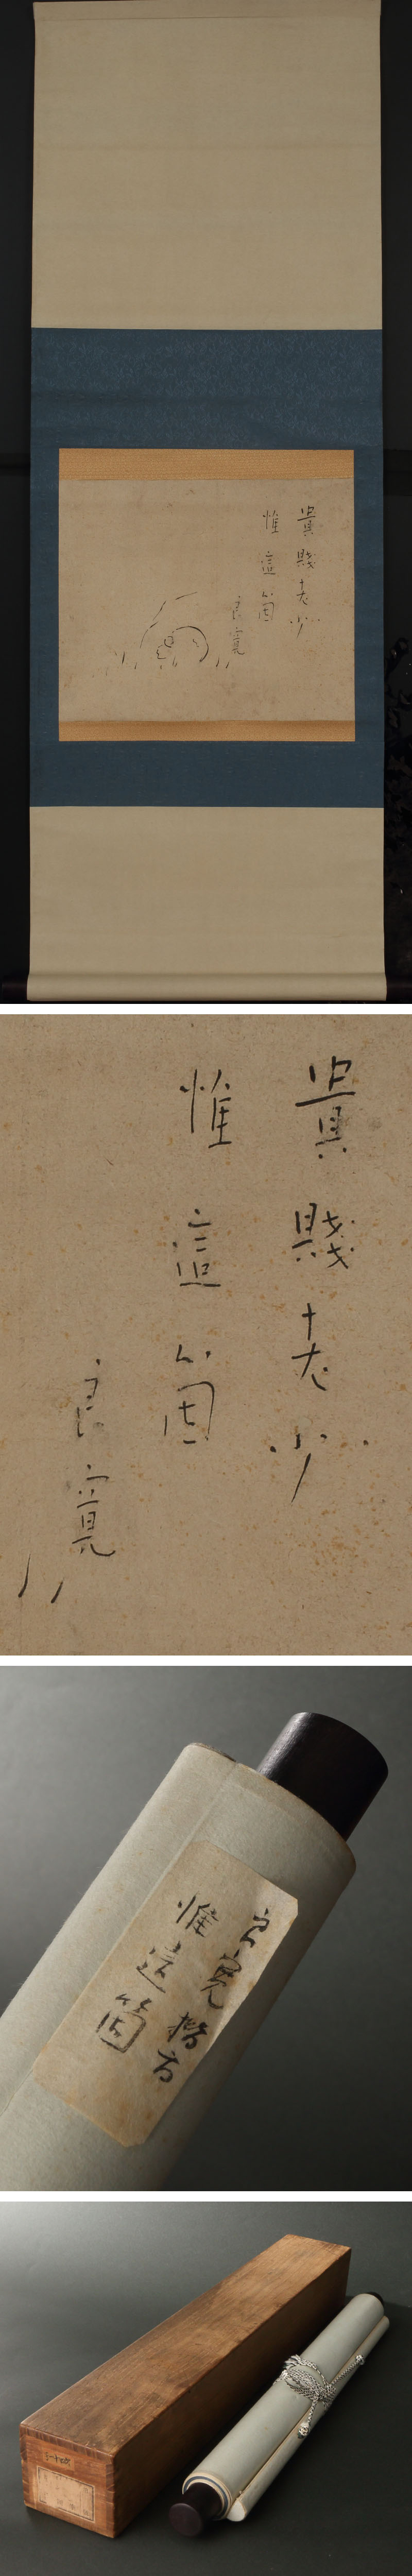 貴賤老少
惟這箇
良寛
貴賤老少
惟這箇
良寛
良寛
惟這箇